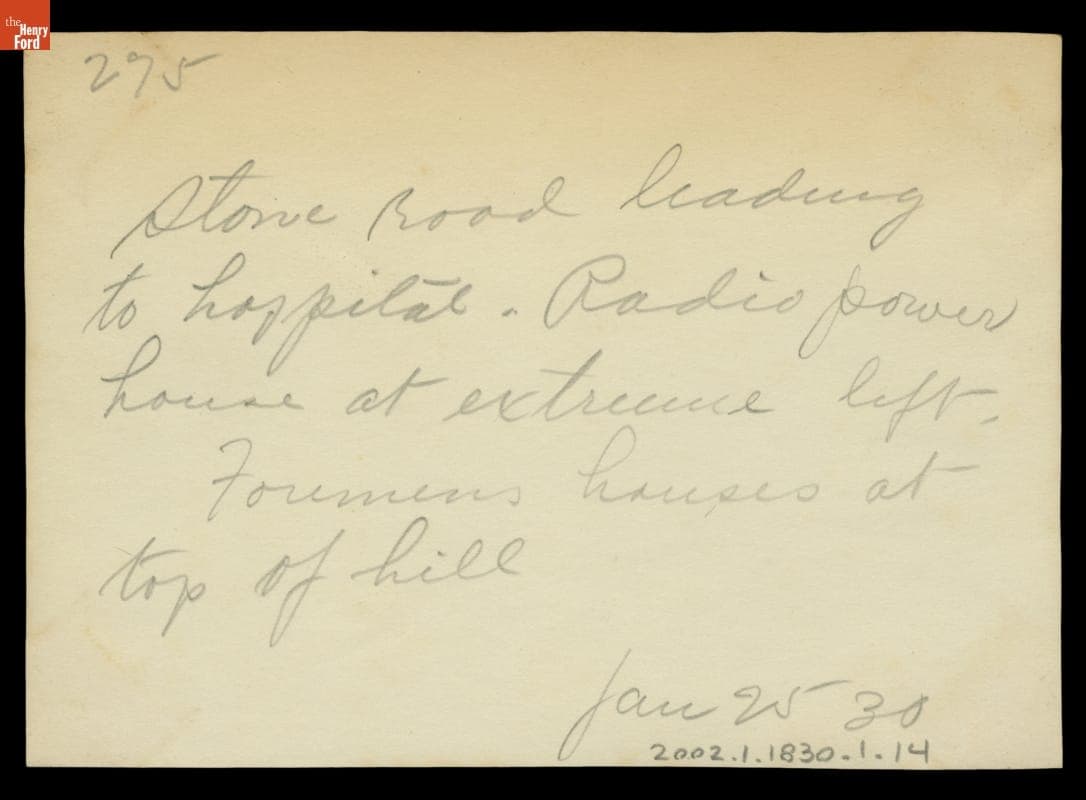 the
Henry
Ford
275
Stone Road leading
to hospital. Radio power
house at extreme left.
Foremens houses at
top of hill
Jan 25 30
2002.1.1830.1.14